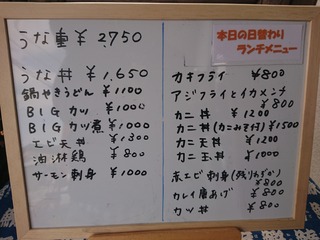 うな重 ¥2,750
うな丼 ¥1,650
鍋やきうどん ¥1100
BIGカツ ¥1000
BIGカツ煮 ¥1000
エビ天丼 ¥1300
油淋鶏 ¥800
サーモン刺身 ¥1000
本日の日替わり
ランチメニュー
カキフライ ¥800
アジフライとイカメンチ
¥800
カニ丼 ¥1200
カニ丼(カニみそ付) ¥1500
カニ天丼 ¥1200
カニ玉丼 ¥1000
赤エビ刺身(残りわずか)
¥800
カレイ唐あげ ¥800
カツ丼 ¥800